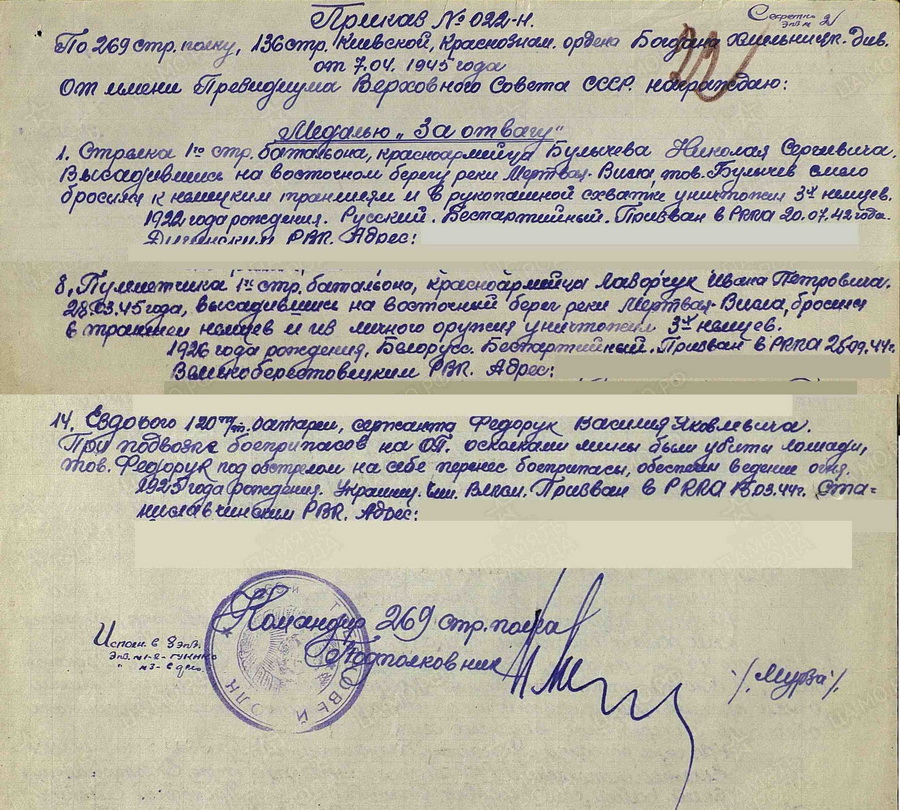 Приказ № 022-н.
Секретно
Экз. № 2
По 269 стр. полку, 136 стр. Киевской, Краснознам. ордена Богдана Хмельницк. див.
от 7.04.1945 года
От имени Президиума Верховного Совета СССР награждаю:
Медалью „За отвагу"
1. Стрелка 1го стр. батальона, красноармейца Булычева Николая Сергеевича.
Высадившись на восточном берегу реки Мертвая-Висла тов. Булычев смело
бросился к немецким траншеям и в рукопашной схватке уничтожил 3х немцев.
1922 года рождения. Русский. Беспартийный. Призван в РККА 20.07.42 года.
РВК. Адрес:
8. Пулеметчика 1го стр. батальона, красноармейца Лаворчук Ивана Петровича.
28.03.45 года, высадившись на восточный берег реки Мертвая-Висла, бросился
в траншеи немцев и из личного оружия уничтожил 3х немцев.
1926 года рождения, Белорусс. Беспартийный. Призван в РККА 25.09.44г.
Великоберестовецким РВК. Адрес:
14. Ездового 120 м/м. батареи, сержанта Федорук Василия Яковлевича.
При подвозке боеприпасов на ОП. осколками мины были убиты лошади,
тов. Федорук под обстрелом на себе перенес боеприпасы, обеспечив ведение огня.
1925 года рождения. Украинец. Член ВЛКСМ. Призван в РККА 15.03.44г. Ста-
ниславчинским РВК. Адрес:
Командир 269 стр. полка
Подполковник
/Мурза/.
Исполн. в 3 экз.